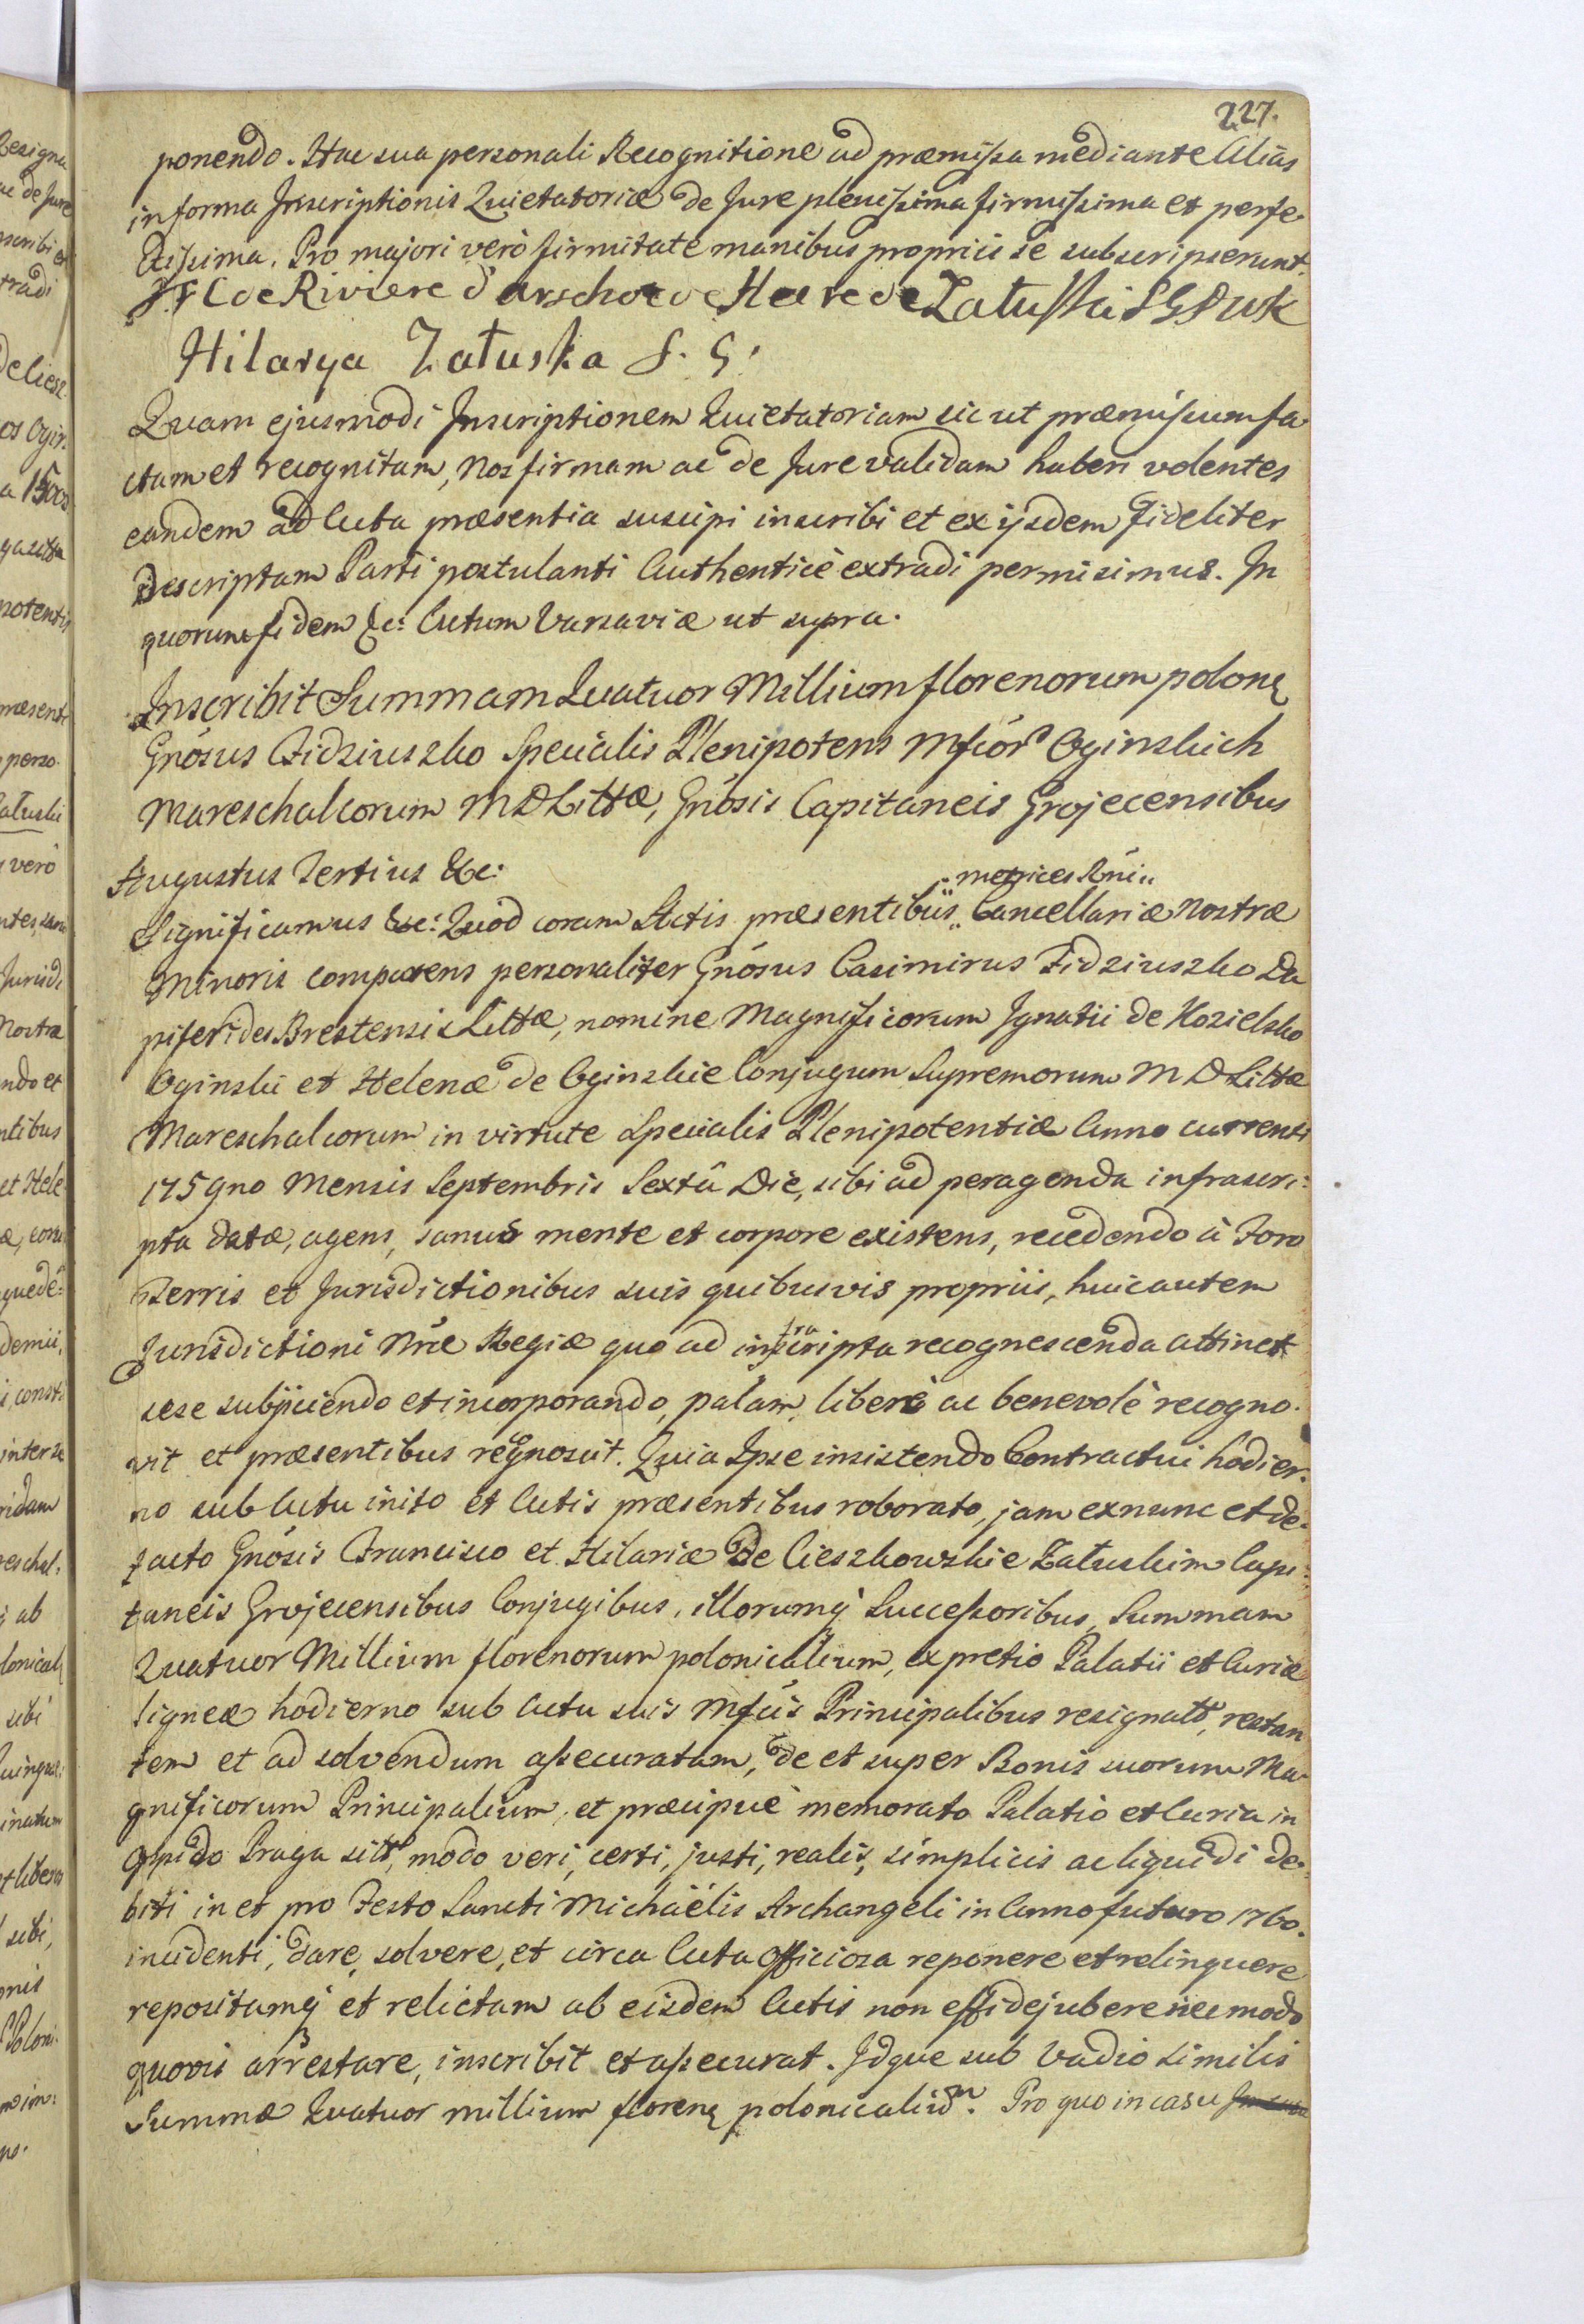 227.
ponendo. Hac sua personali Recognitione ad præmissa mediante Alias
in forma Inscriptionis Quietatoriæ de Jure plenissima firmissima et perfe-
ctissima. Pro majori verò firmitate manibus propriis se subscripserunt.
de Riviere d'arschot de Załuski SGDWK
Hilarya Załuska S. G.
Quam ejusmodi Inscriptionem Quietatoriam sic ut præmissum fa
ctam et recognitam, Nos firmam ac de Jure validam haberi volentes
eandem ad Acta præsentia suscipi inscribi et ex ijsdem fideliter
descriptam Parti postulanti Authenticè extradi permisimus. In
quorum fidem &c: Actum Varsaviæ ut supra.
Inscribit Summam Quatuor Millium florenorum polonq
Gnósus Fidziuszko Specialis Plenipotens Mfcór Oginskich
Mareschalcorum MDLittæ, Gnósis Capitaneis Grojecensibus
Augustus Tertius &c:
metrices Rni
Significamus &c: Quod coram Actis præsentibus Cancellariæ Nostræ
Minoris comparens personaliter Gnósus Casimirus Fidziuszko Da
piferides Brestensis Littæ, nomine Magnificorum Ignatii de Kozielsko
Oginski et Helenæ de Oginskie Conjugum Supremorum M D Littæ
Mareschalcorum in virtute Specialis Plenipotentiæ Anno currenti
1759no Mensis Septembris Sextâ Die, sibi ad peragenda infrascri:
pta datæ, agens, sanus mente et corpore existens, recedendo à Foro
Terris et Jurisdictionibus suis quibusvis propriis, huic autem
Jurisdictioni Nræ Regiæ quo ad infrascripta recognoscenda attinet
sese subjiciendo et incorporando, palam, liberè ac benevolè recogno-
vit et præsentibus recognoscit. Quia Ipse insistendo Contractui hodier-
no sub Actu inito et Actis præsentibus roborato, jam exnunc et de-
facto Gnósis Francisco et Hilariæ de Cieszkowskie Załuskim Capi:
taneis Grojecensibus Conjugibus, illorumq Successoribus, Summam
Quatuor Millium florenorum polonicalium, ex pretio Palatii et Curiæ
ligneæ hodierno sub Actu suis Mfcis Principalibus resignat, restan
tem et ad solvendum assecuratam, de et super Bonis suorum Ma-
gnificorum Principalium, et præcipuè memorato Palatio et Curia in
Opido Praga sitt, modo veri, certi, justi, realis, simplicis ac liquidi de-
biti in et pro Festo Sancti Michaëlis Archangeli in Anno futuro 1760.
incidenti, dare, solvere, et circa Acta Officiosa reponere et relinquere
repositamq et relictam ab eisdem Actis non effidejubere nec modo
quovis arrestare, inscribit et assecurat. Idque sub Vadio similis
Summæ Quatuor millium florenq polonicalium. Pro quo in casu